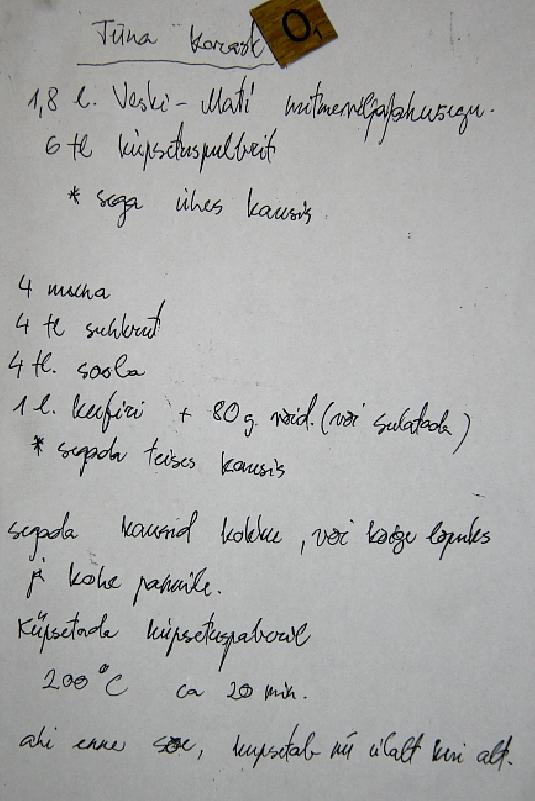 Tiina karask
O1
1,8 l. Veski-Mati mitmeviljajahusegu.
6 tl küpsetuspulbrit
* sega ühes kausis.
4 muna
4 tl suhkrut
4 tl. soola
1 l. keefiri + 80 g võid. (või sulatada)
* segada teises kausis
segada kausid kokku, või kõige lõpuks
ja kohe pannile.
Küpsetada küpsetuspaberil
200 °C ca 20 min.
ahi enne soe, küpsetab nii ülalt kui alt.